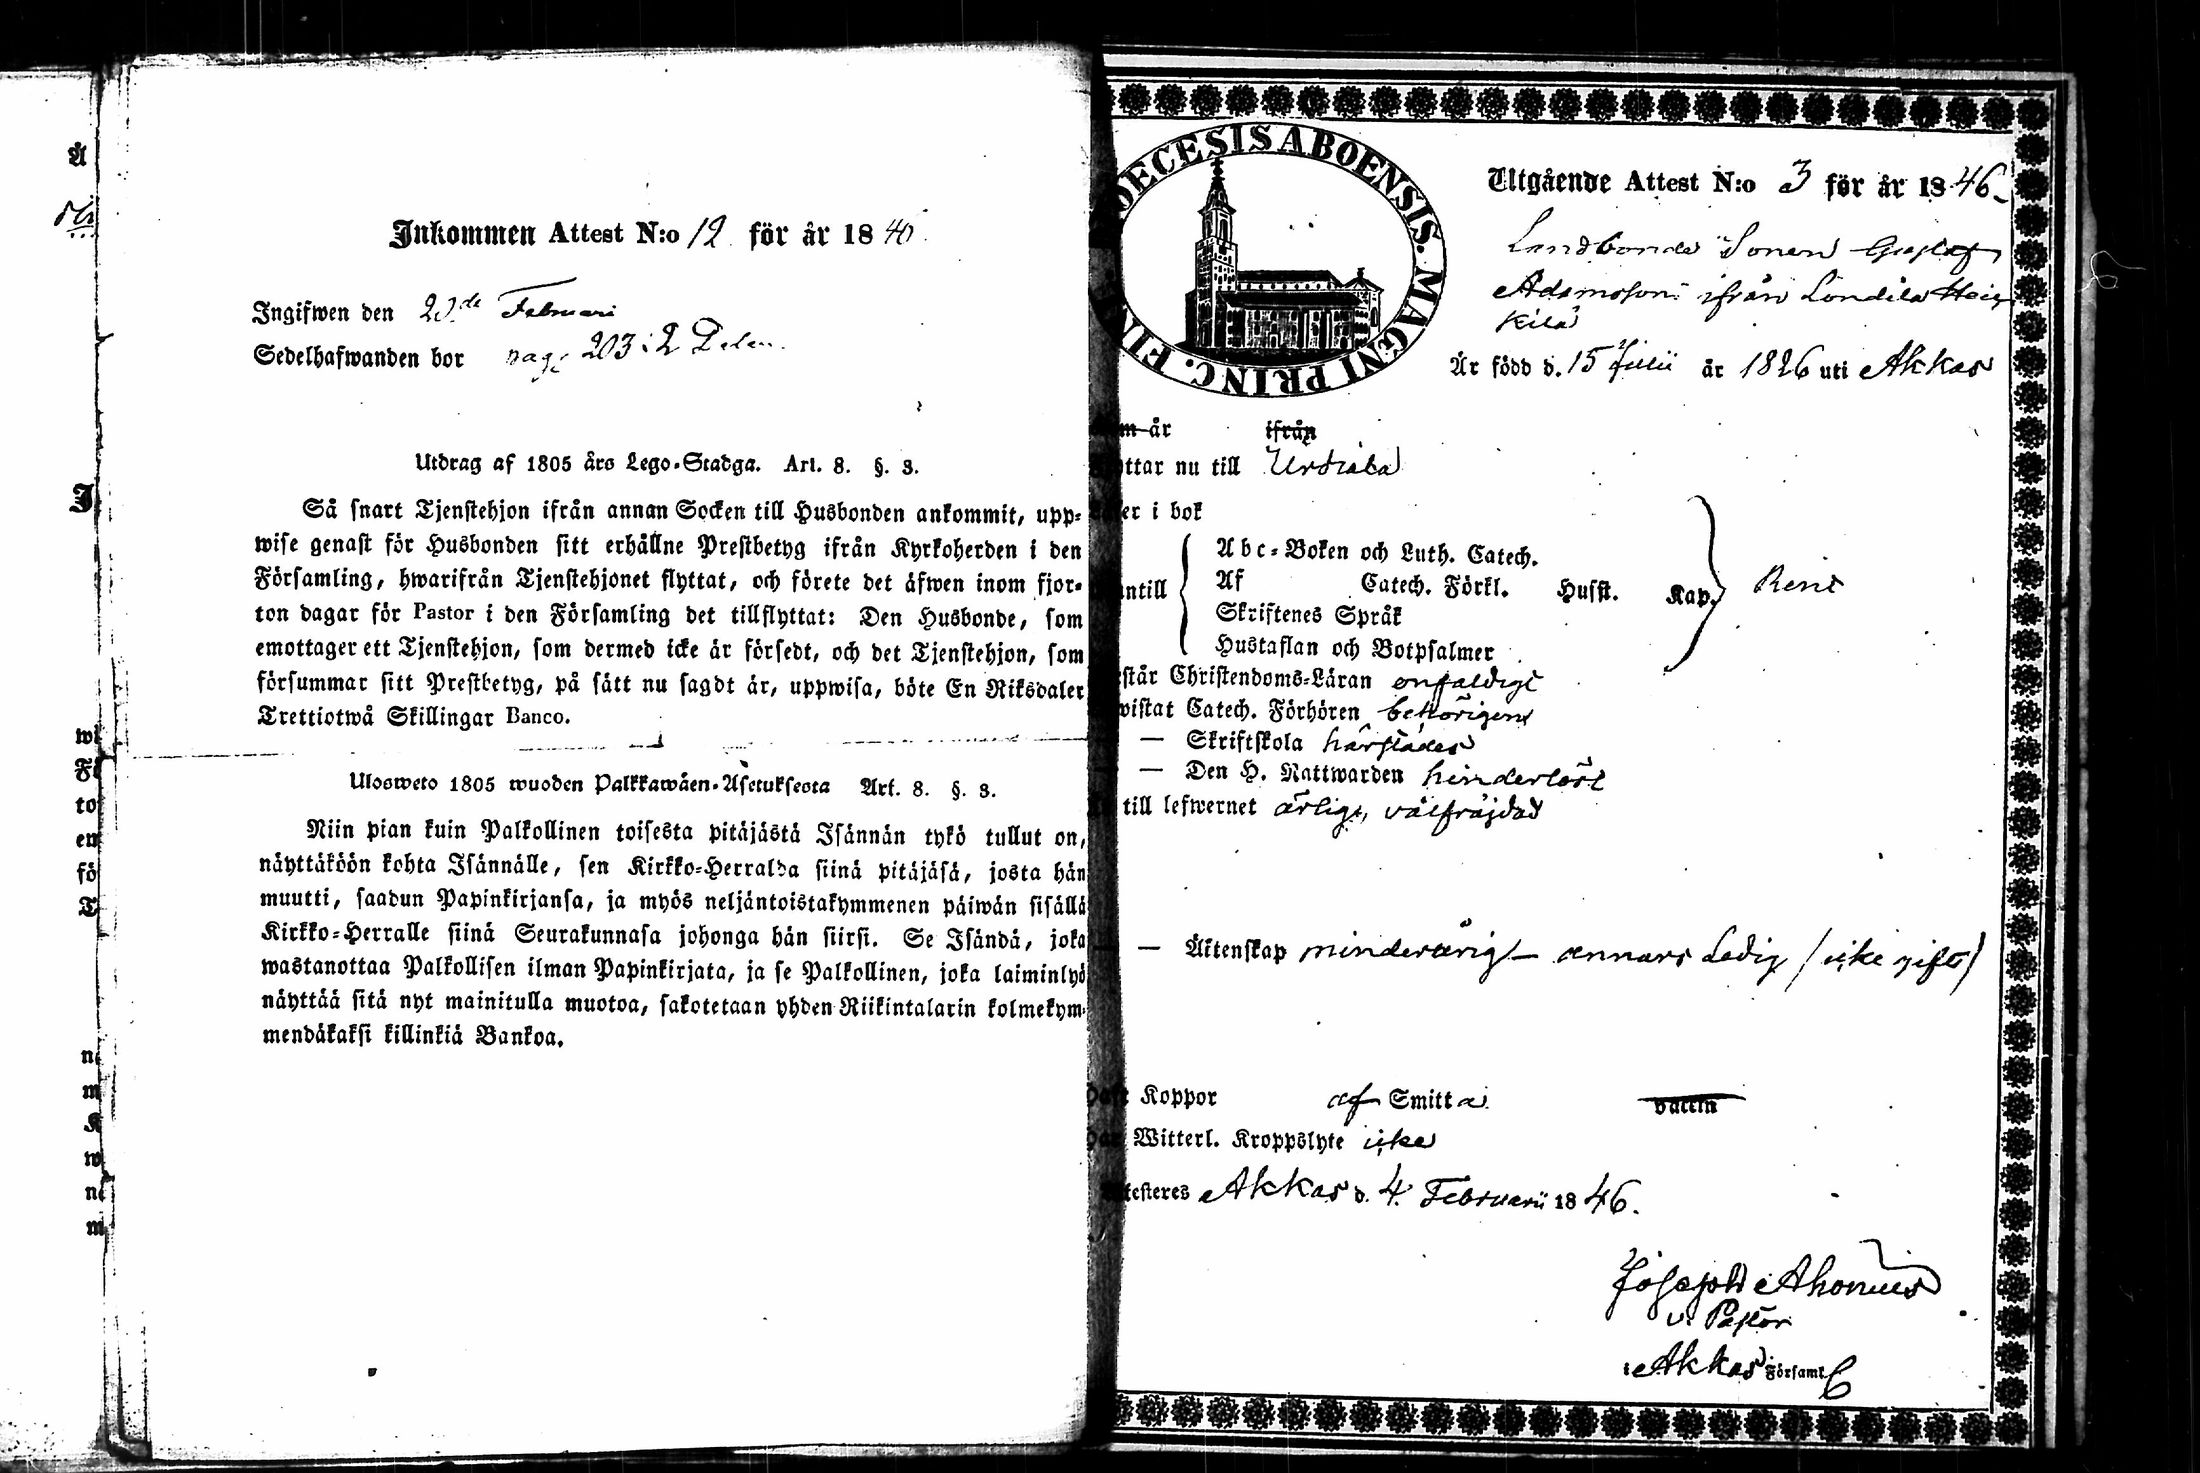 Å
J
wi
Fö
to
em
fö
T
nä
m
K
w
nä
m
Inkommen Attest N:o 12 för år 1846.
Ingifwen den 20de Februari
Sedelhafwanden bor pag. 203 i 2 Delen.
Utdrag af 1805 års Lego-Stadga. Art. 8. §. 3.
Så snart Tjenstehjon ifrån annan Socken till Husbonden ankommit, upp-
wise genast för Husbonden sitt erhållne Prestbetyg ifrån Kyrkoherden i den
Församling, hwarifrån Tjenstehjonet flyttat, och förete det äfwen inom fjor-
ton dagar för Pastor i den Församling det tillflyttat: Den Husbonde, som
emottager ett Tjenstehjon, som dermed icke är försedt, och det Tjenstehjon, som
försummar sitt Prestbetyg, på sätt nu sagdt är, uppwisa, böte En Riksdaler
Trettiotwå Skillingar Banco.
Ulosweto 1805 wuoden Palkkawäen-Asetuksesta Art. 8. §. 3.
Niin pian kuin Palkollinen toisesta pitäjästä Isännän tykö tullut on,
näyttäköön kohta Isännälle, sen Kirkko-Herralda siinä pitäjäsä, josta hän
muutti, saadun Papinkirjansa, ja myös neljäntoistakymmenen päiwän sisällä
Kirkko-Herralle siinä Seurakunnasa johonga hän siirsi. Se Isändä, joka
wastanottaa Palkollisen ilman Papinkirjata, ja se Palkollinen, joka laiminlyö
näyttää sitä nyt mainitulla muotoa, sakotetaan yhden Riikintalarin kolmekym-
mendäkaksi killinkiä Bankoa.
DECESIS ABOENSIS. MAGNI PRINC. FIN
Utgående Attest N:o 3 för år 1846.
Landbonde Sonen Gustaf
Adamsson ifrån Londila Heik
kilä
Är född d. 15 Julii år 1826 uti Akkas
m år ifrån
ttar nu till Urdiala
er i bok
antill
Abc-Boken och Luth. Catech.
Af Catech. Förkl. Hussl. Kap. Rent
Skriftenes Språk
Hustaflan och Botpsalmer
står Christendoms-Läran enfaldigt
wistat Catech. Förhören behörigen
— Skriftskola härstädes
— Den H. Nattwarden hinderlöst
till lefwernet ärlig, välfräjdad
— Äktenskap minderårig — annars Ledig / icke gift /
haft Koppor af Smitta vaccin
har Witterl. Kroppslyte icke
testeres Akkas d. 4 Februarii 1846.
Joseph Ahonius
v. Pastor
i Akkas Församl